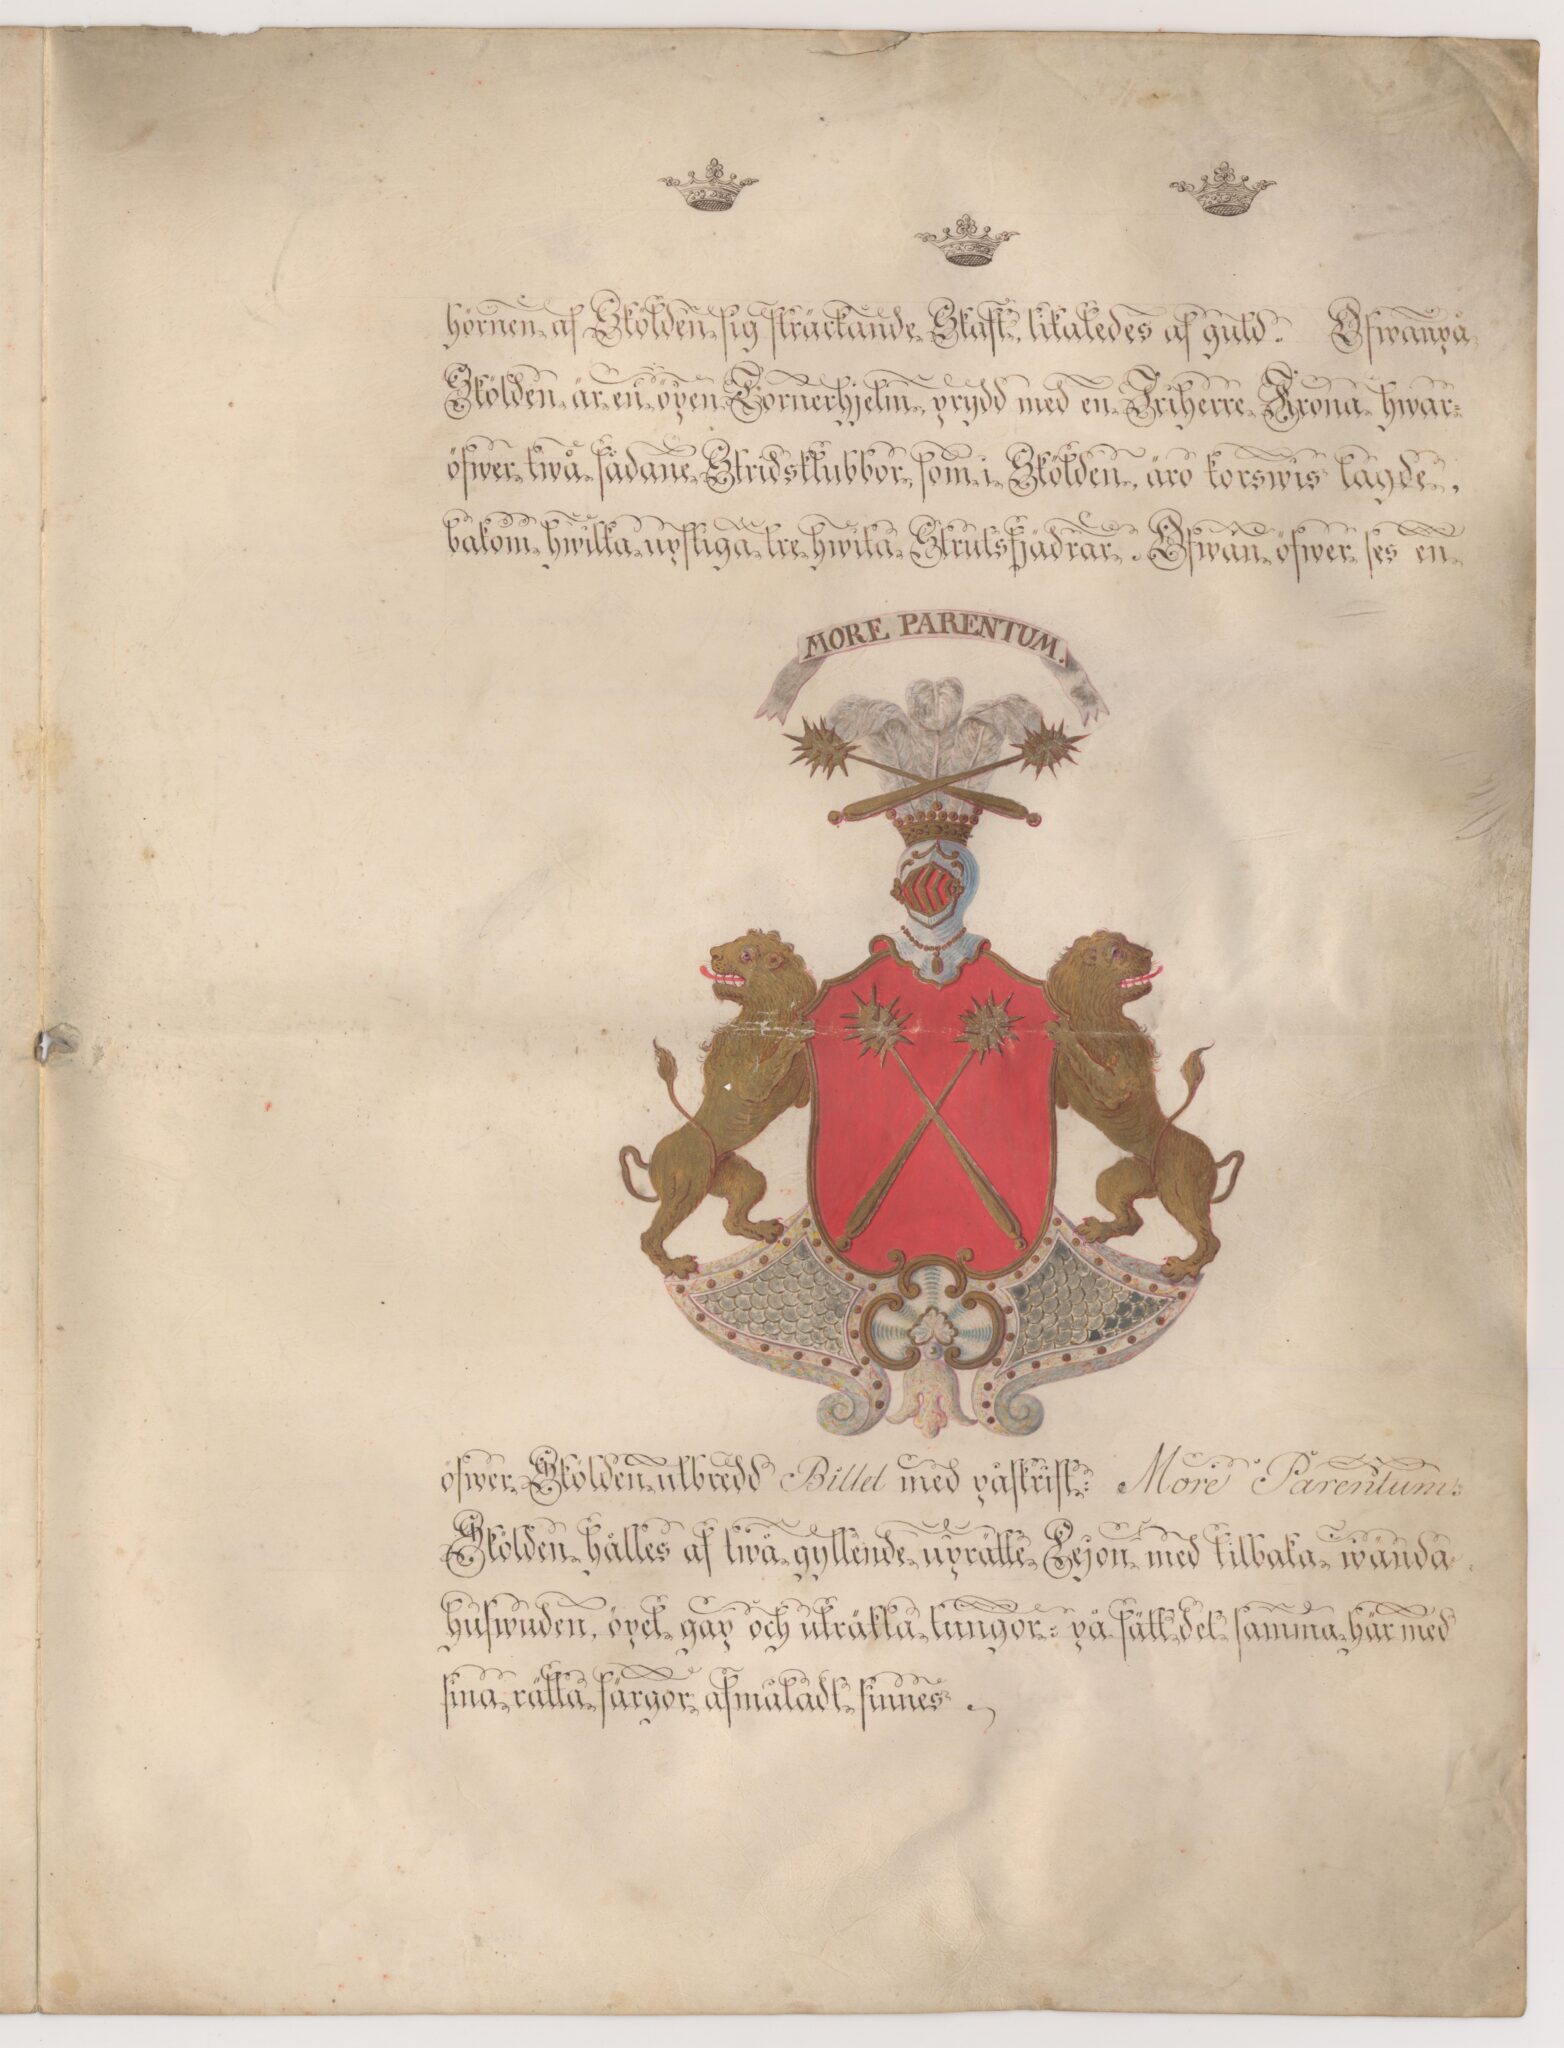 hörnen af Skölden sig sträckande Skaft, likaledes af guld. Ofwanpå
Skölden är en öpen Tornerhjelm, prydd med en Friherre Krona, hwar-
öfwer twå sådane Stridsklubbor, som i Skölden, äro korswis lagde,
bakom hwilka upstiga tre hwita Strutsfjädrar. Ofwan öfwer ses en
MORE PARENTUM.
öfwer Skölden utbredd Billet med påskrift: More Parentum:
Skölden hålles af twå gyllende uprätte Lejon med tilbaka wända
hufwuden, öpet gap och uträkta tungor: på sätt det samma här med
sina rätta färgor afmåladt finnes.